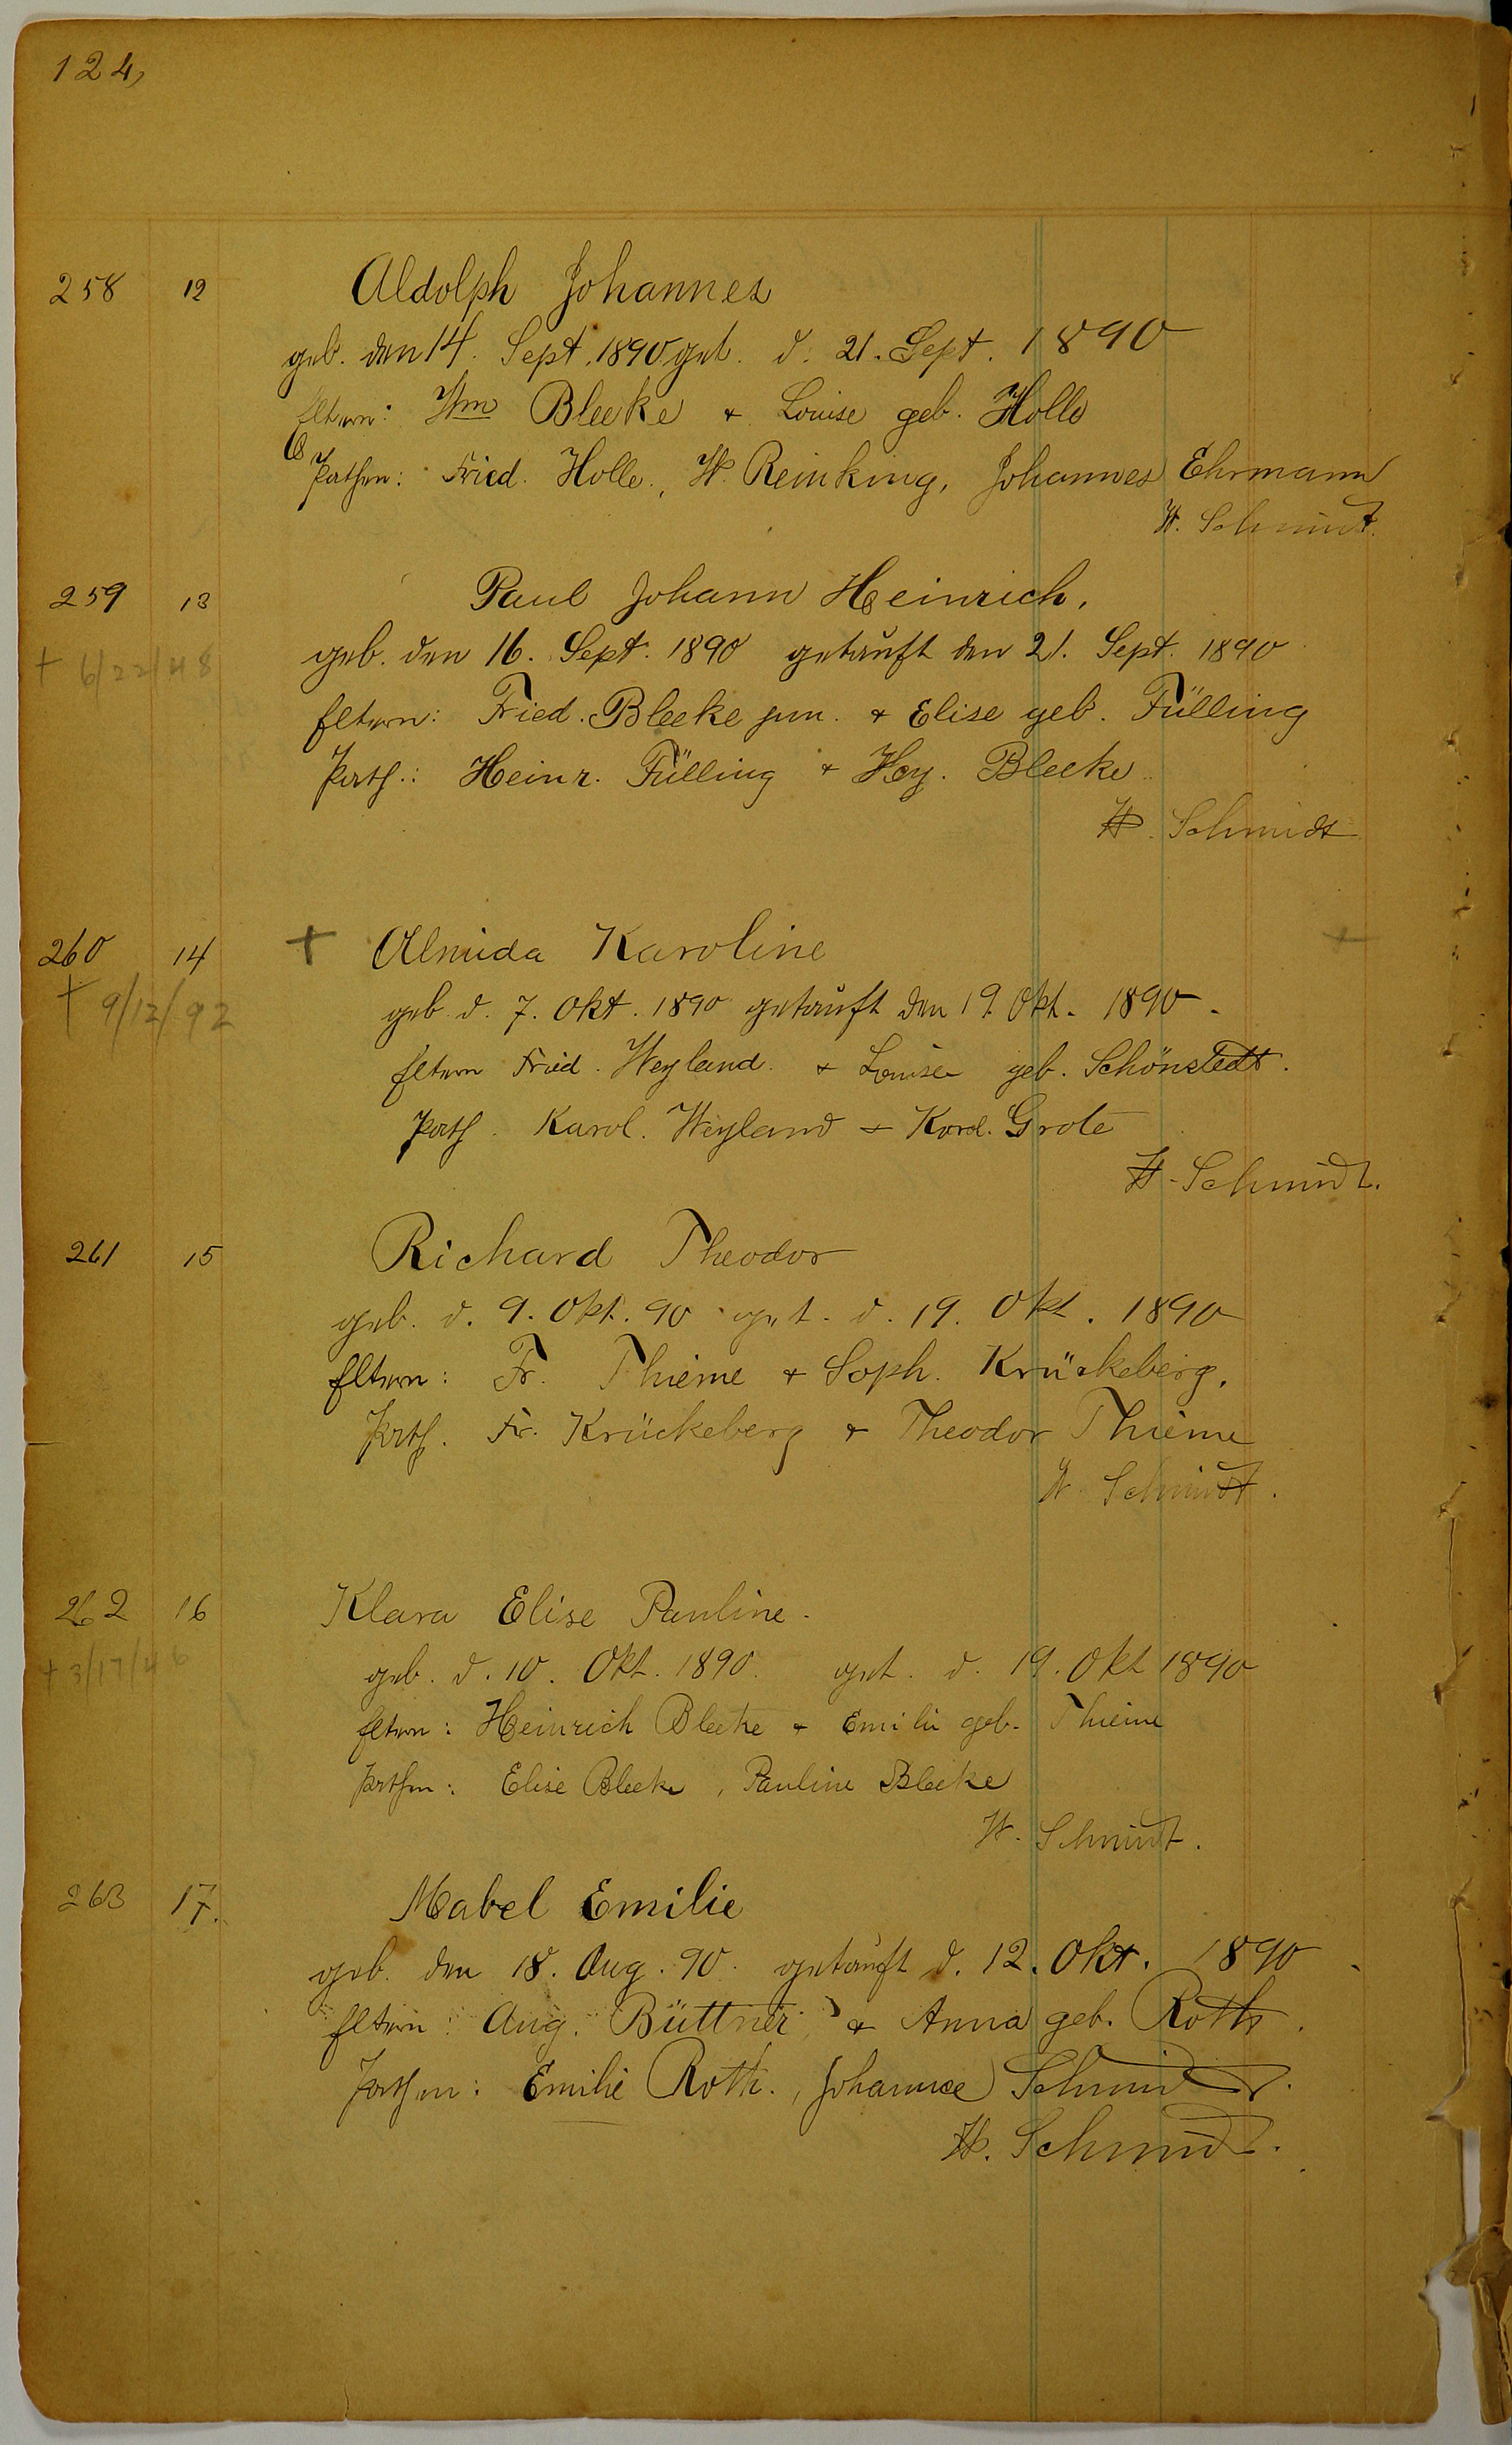 124,
258 12 Aldolph Johannes
geb. den 14. Sept. 1890 get. d. 21. Sept. 1890
Eltern: Wm Bleeke + Louise geb. Holle
Pathen: Fried. Holle, W. Reinking, Johannes Ehrmann
W. Schmidt.
259 13 Paul Johann Heinrich,
geb. den 16. Sept. 1890 getauft den 21. Sept. 1890
† 6/22/48
Eltern: Fried. Bleeke jun. + Elise geb. Fülling
Path.: Heinr. Fülling + Hy. Bleeke
W. Schmidt
260 14 + Almida Karoline +
† 9/12/92
geb. d. 7. Okt. 1890 getauft den 19. Okt. 1890.
Eltern Fried. Weyland + Louise geb. Schönstedt.
Path. Karol. Weyland + Kord. Grote
W. Schmidt.
261 15 Richard Theodor
geb. d. 9. Okt. 90 get. d. 19. Okt. 1890
Eltern: Fr. Thieme + Soph. Krückeberg.
Path. Fr. Krückeberg + Theodor Thieme
W. Schmidt.
262 16 Klara Elise Pauline.
† 3/17/46
geb. d. 10. Okt. 1890. get. d. 19. Okt 1890
Eltern: Heinrich Bleeke + Emilie geb. Thieme
Pathen: Elise Bleeke, Pauline Bleeke
W. Schmidt.
263 17. Mabel Emilie
geb. den 18. Aug. 90. getauft d. 12. Okt. 1890
Eltern: Aug. Büttner + Anna geb. Roth.
Pathen: Emilie Roth., Schmidt.
W. Schmidt.